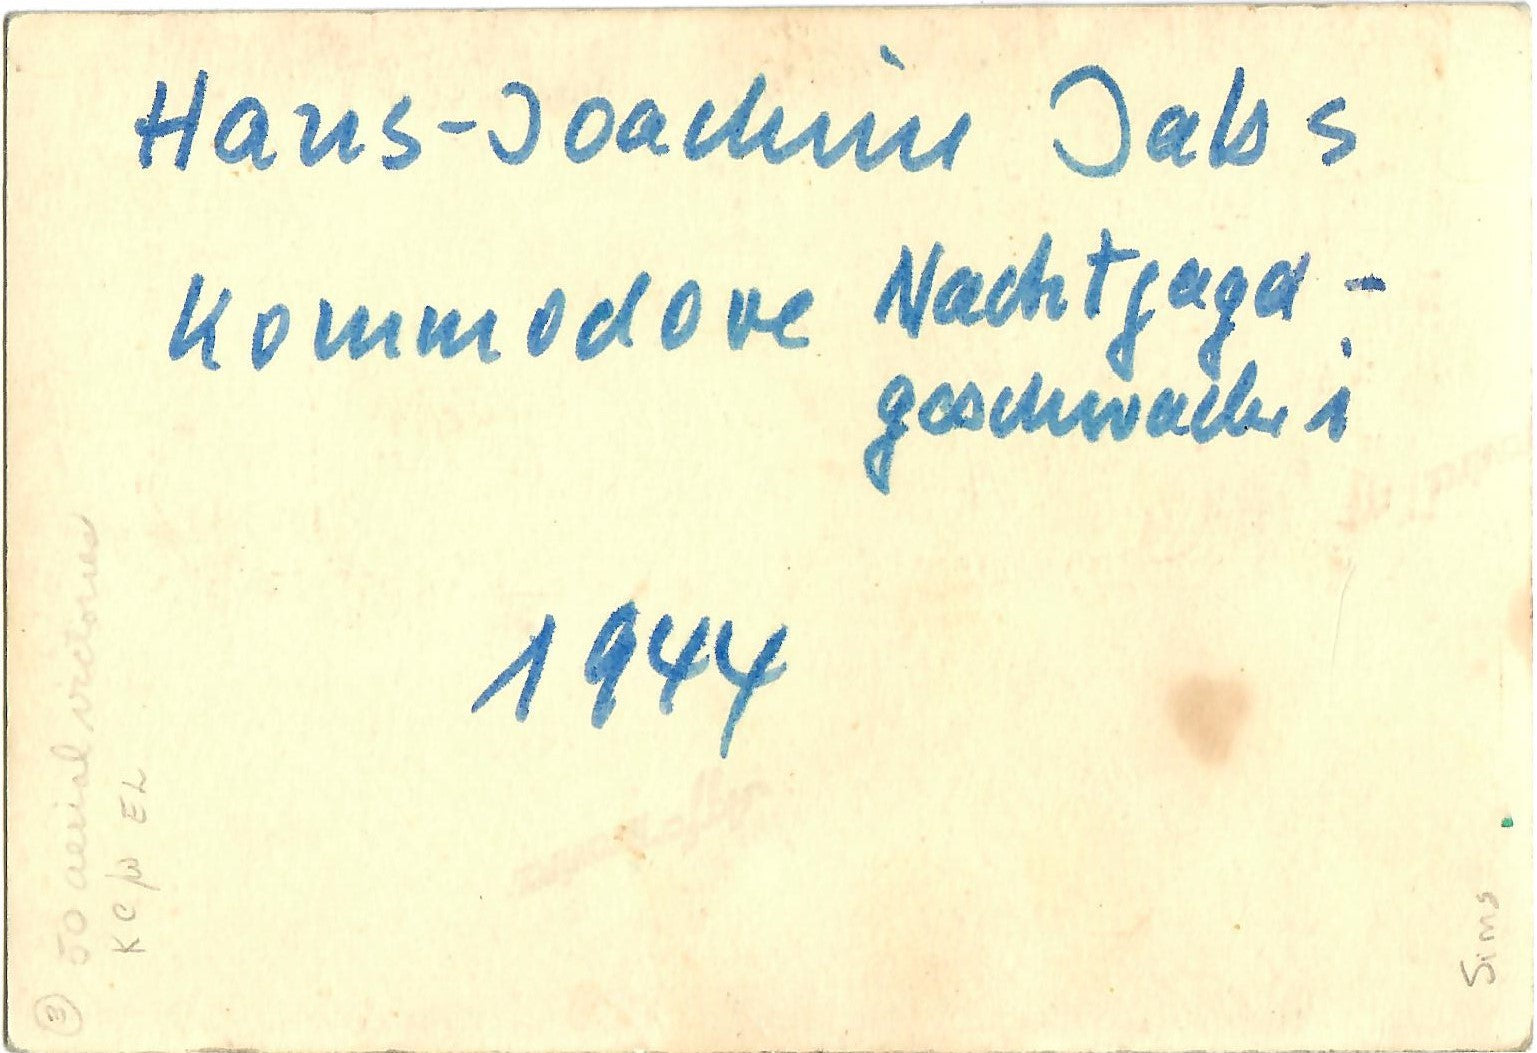 Hans-Joachim Jabs
Kommodore Nachtjagd-
geschwader 1
1944
50 aerial victories
KC/w EL
3
Sims